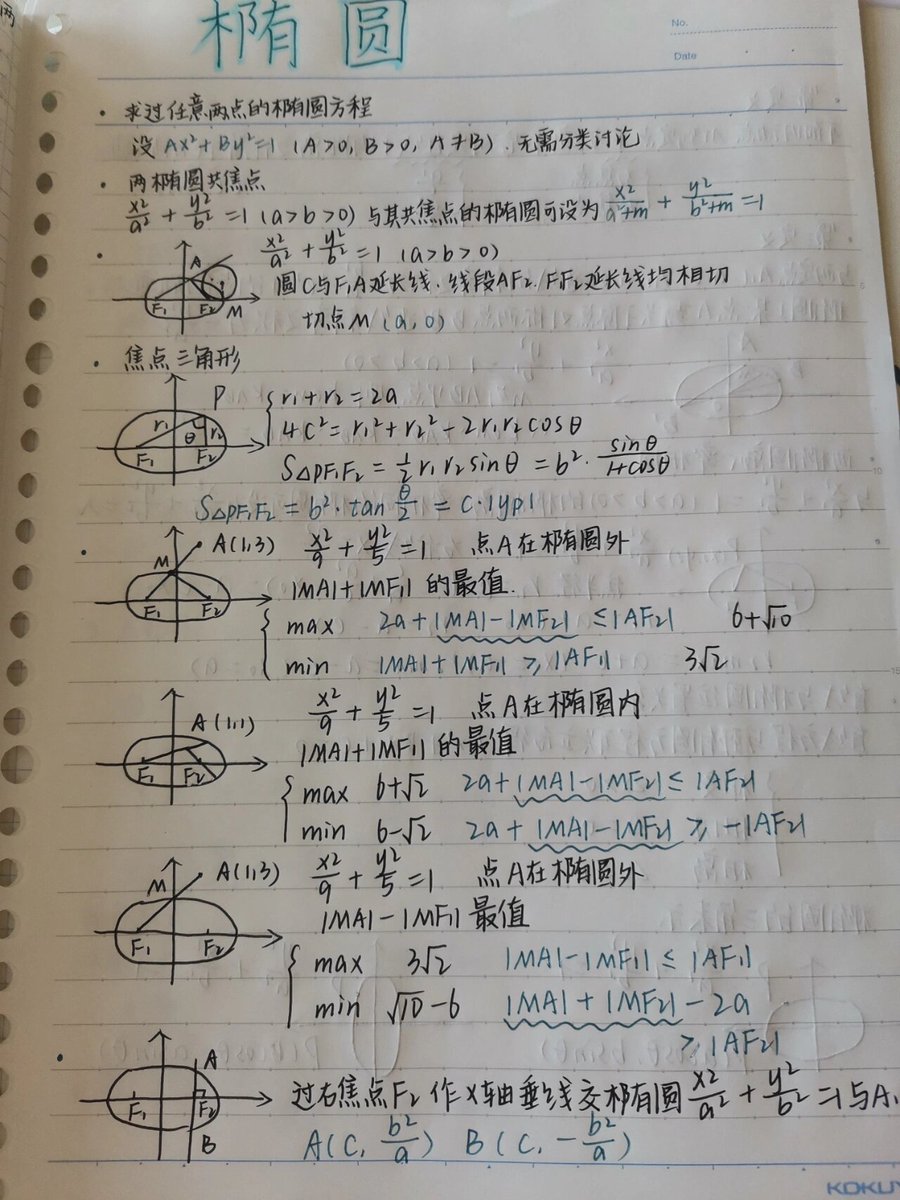 椭圆
No.
Date
· 求过任意两点的椭圆方程
设 Ax²+By²=1 (A>0, B>0, A≠B). 无需分类讨论
· 两椭圆共焦点
x²/a² + y²/b² =1 (a>b>0) 与其共焦点的椭圆可设为 x²/(a²+m) + y²/(b²+m) =1
· x²/a² + y²/b² =1 (a>b>0)
A F₁ F₂ M
圆C与F₁A延长线、线段AF₂/FF₂延长线均相切
切点M (a, 0)
· 焦点三角形
P r₁ θ r₂ F₁ F₂
{ r₁+r₂=2a
4C²=r₁²+r₂²-2r₁r₂cosθ
S△PF₁F₂ = ½ r₁r₂ sinθ = b²· sinθ/(1+cosθ)
S△PF₁F₂ = b²·tan θ/2 = c·|yp|
· A(1,3) M F₁ F₂
x²/9 + y²/5 =1 点A在椭圆外
|MA|+|MF₁| 的最值.
{ max 2a+|MA|-|MF₂| ≤|AF₂| 6+√10
min |MA|+|MF₁| ≥|AF₁| 3√2
· A(1,1) F₁ F₂
x²/9 + y²/5 =1 点A在椭圆内
|MA|+|MF₁| 的最值
{ max 6+√2 2a+|MA|-|MF₂| ≤ |AF₂|
min 6-√2 2a+|MA|-|MF₂| ≥ -|AF₂|
· A(1,3) M F₁ F₂
x²/9 + y²/5 =1 点A在椭圆外
|MA|-|MF₁| 最值
{ max 3√2 |MA|-|MF₁| ≤ |AF₁|
min √10-6 |MA|+|MF₂|-2a
≥|AF₂|
· A F₁ F₂ B
过右焦点F₂作x轴垂线交椭圆 x²/a² + y²/b² =1与A.
A(C, b²/a) B(C, -b²/a)